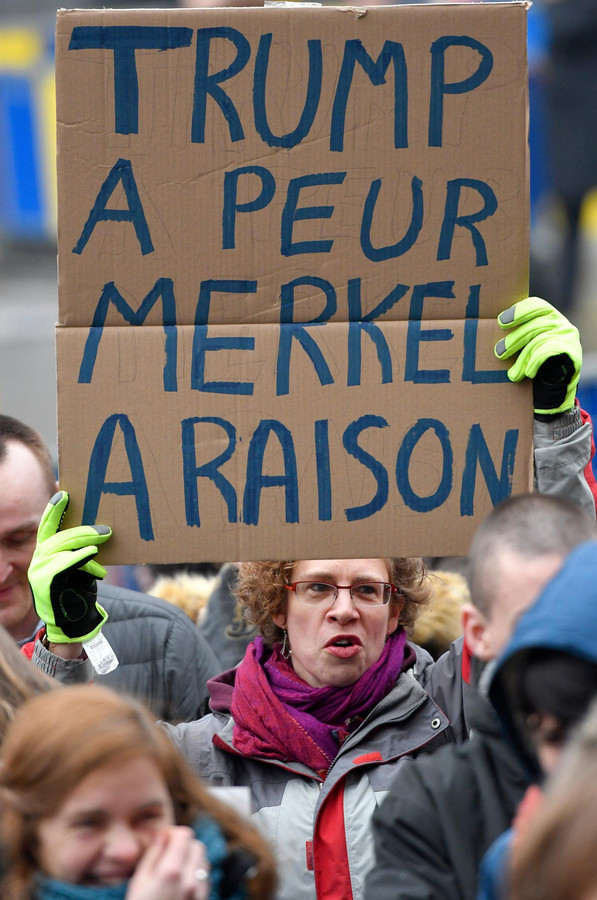 TRUMP
A PEUR
MERKEL
A RAISON